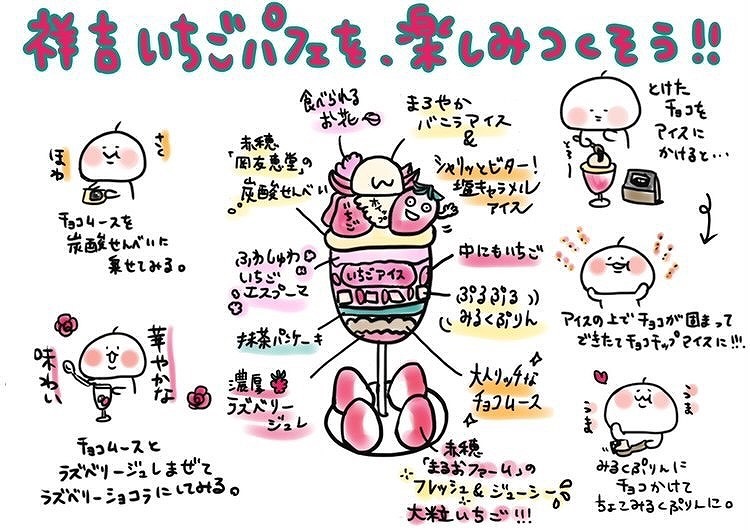 祥吉いちごパフェを、楽しみつくそう!!
食べられる
お花
まろやか
バニラアイス
&
シャリッとビター!
塩キャラメル
アイス
赤穂
「岡友恵堂」の
炭酸せんべい
ふわしゅわ
いちご
エスプーマ
抹茶パンケーキ
濃厚
ラズベリー
ジュレ
いちご
ホイップ
いちごアイス
中にもいちご
ぷるぷる
みるくぷりん
大人リッチな
チョコムース
赤穂
「まるおファーム」の
フレッシュ&ジューシー
大粒いちご!!!
さく
ほわ
チョコムースを
炭酸せんべいに
乗せてみる。
華やかな
味わい
チョコムースと
ラズベリージュレまぜて
ラズベリーショコラにしてみる。
とけた
チョコを
アイスに
かけると…
とろ〜
アイスの上でチョコが固まって
できたてチョコチップアイスに!!!
うま
うま
みるくぷりんに
チョコかけて
ちょこみるくぷりんに。